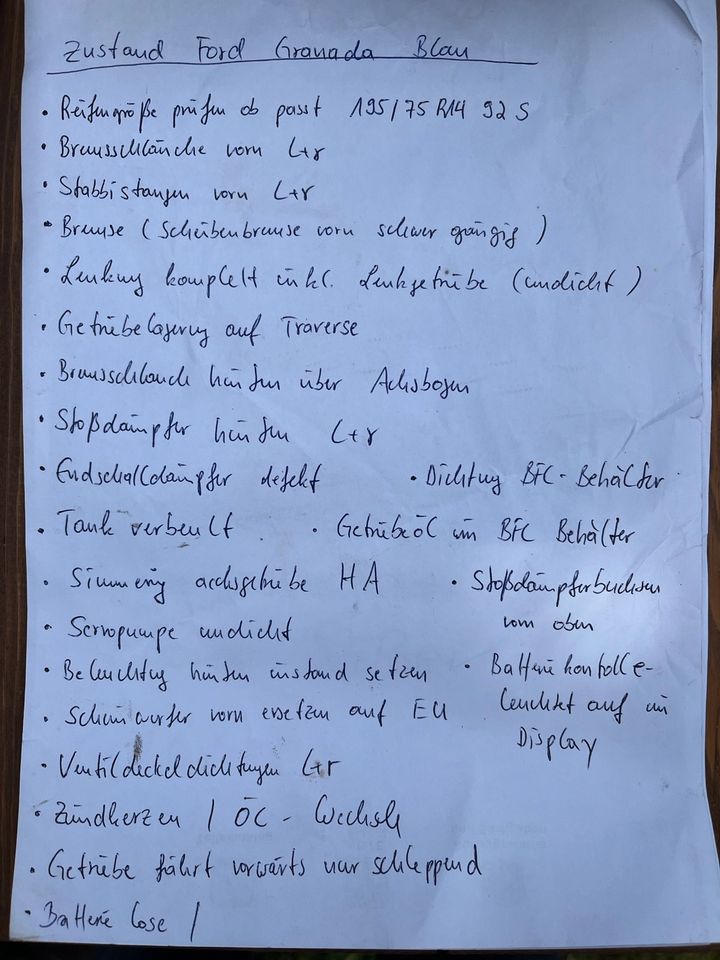 Zustand Ford Granada Blau
• Reifengröße prüfen ob passt 195/75 R14 92 S
• Bremsschläuche vorn L+r
• Stabbistangen vorn L+r
• Bremse (Scheibenbremse vorn schwer gängig)
• Lenkung komplett inkl. Lenkgetriebe (undicht)
• Getriebelagerung auf Traverse
• Bremsschlauch hinten über Achsbogen
• Stoßdämpfer hinten L+r
• Endschalldämpfer defekt
• Dichtung BFC-Behälter
• Tank verbeult
• Getriebeöl im BFC Behälter
• Simmering achsgetriebe HA
• Stoßdämpferbuchsen
vorn oben
• Servopumpe undicht
• Beleuchtung hinten instand setzen
• Batterie kontolle-
leuchtet auf im
Display
• Scheinwerfer vorn ersetzen auf EU
• Ventildeckeldichtungen L+r
• Zündkerzen / Öl-Wechsel
• Getriebe fährt vorwärts nur schleppend
• Batterie lose /